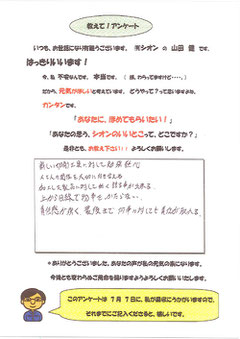 教えて！アンケート
いつも、お世話になり有難うございます。 ㈲シオン の 山田 です。
はっきりいいます！
今、私 不安なんです。 本音です。（ 涙、わらってますけど・・・。）
だから、元気が欲しいと考えています。 どうやって？って言いますよね。
カンタンです。
「あなたに、ほめてもらいたい！」
「あなたの思う、シオンのいいとこって、どこですか？」
是非とも、お教え下さい！！ よろしくお願いします。
新しい 対して
人と人との関係を大切に
加工と製品に対して 出来る。
上から目線で物事をかたらない。
責任感が 最後まで 何事に対しても
＊ありがとうございました。あなたの声が私の元気の素になります。
今後とも変わらぬご愛顧を賜りますようよろしくお願いいたします。
このアンケートは 7 月 7 日に、私が直接にうかがいますので、
それまでにご記入くださると、嬉しいです。